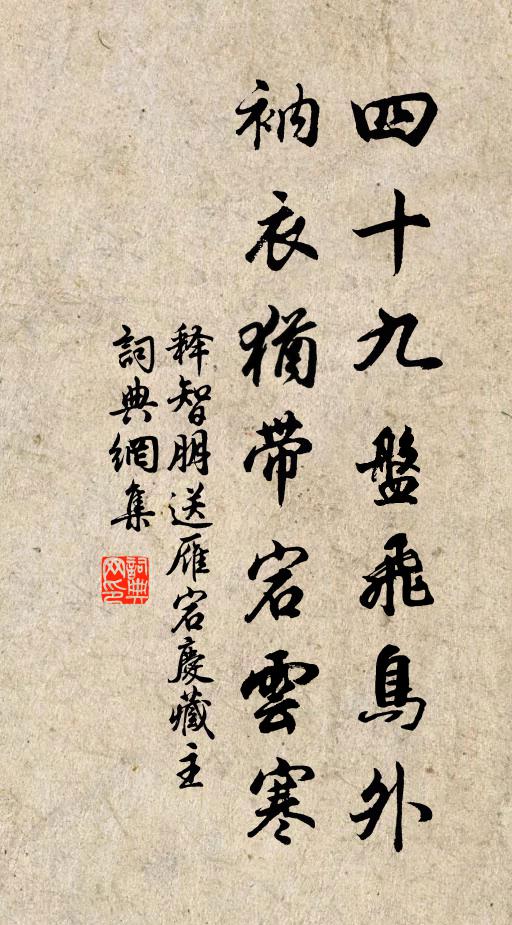 四十九盤飛鳥外
衲衣猶帶岩雲寒
释智朋送雁岩慶藏主
詞典網集
詞典网印